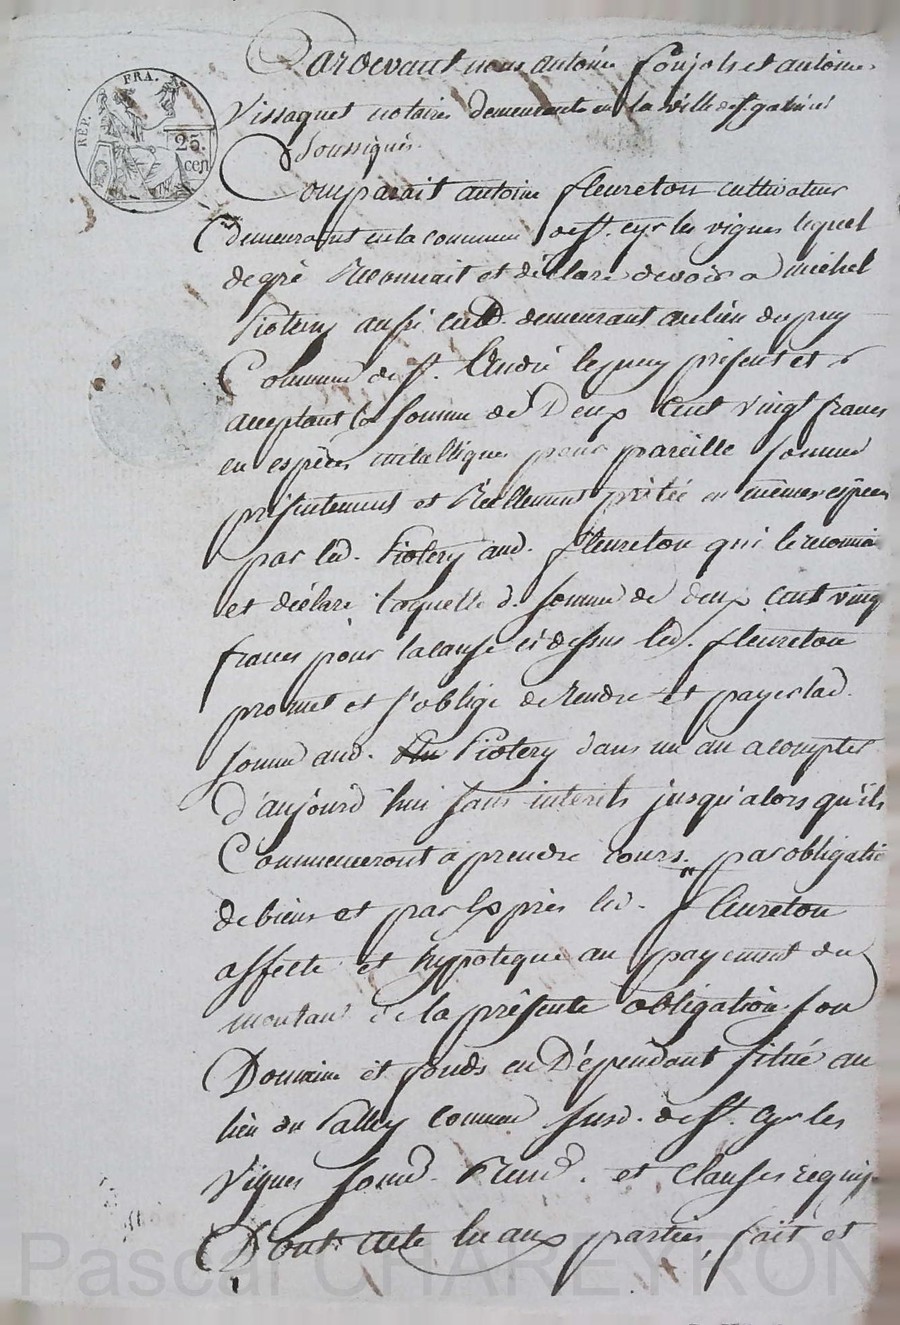 REP. FRA.
25. cen
Pardevant nous antoine foujols et antoine
Vissaguet notaires demeurants en la ville de st. galmier
Soussignés.
Comparait antoine fleureton cultivateur
demeurant en la commune de st. cyr les vignes lequel
de gré reconnait et déclare devoir a michel
Piotery aussi cult. demeurant au lieu du puy
Commune de st. André le puy présent et
acceptant la somme de Deux Cent vingt francs
en espèces métalliques pour pareille somme
présentement et Réellement prêtée en mêmes espèces
par led. Piotery aud. fleureton qui le reconnai
et déclare laquelle d. somme de deux cent ving
francs pour la cause ci dessus led. fleureton
promet et s'oblige de Rendre et payer lad.
somme aud. Piotery dans un an a compter
d'aujourd'hui sans intérêts jusqu'alors qu'ils
Commenceront a prendre cours. par obligatio
de biens et par Exprès led. fleureton
affecte et hypoteque au payement du
montant de la présente obligation son
Domaine et fonds en Dépendant situé au
lieu du Palley commune susd. de st. Cyr les
Vignes soumd. Renond. et Clauses requis
Dont acte lu aux parties, fait et
Pascal CHAREYRON